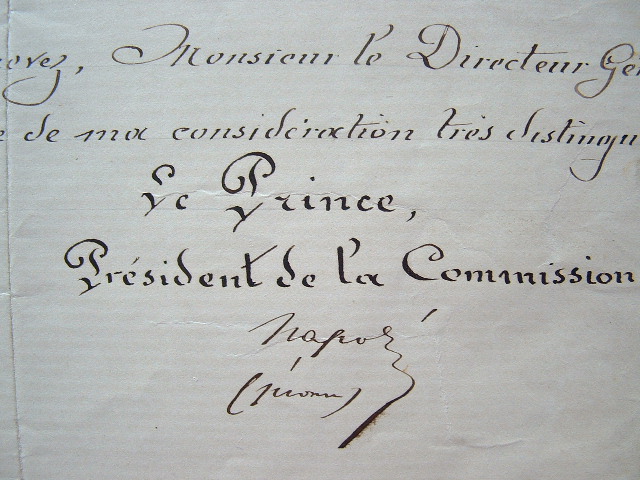 ovez, Monsieur le Directeur Gén
e de ma considération très distingu
Le Prince,
Président de la Commission
Napolé
(Jérome)